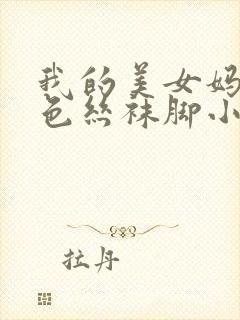 我的美女妈
色丝袜脚小
拉丹